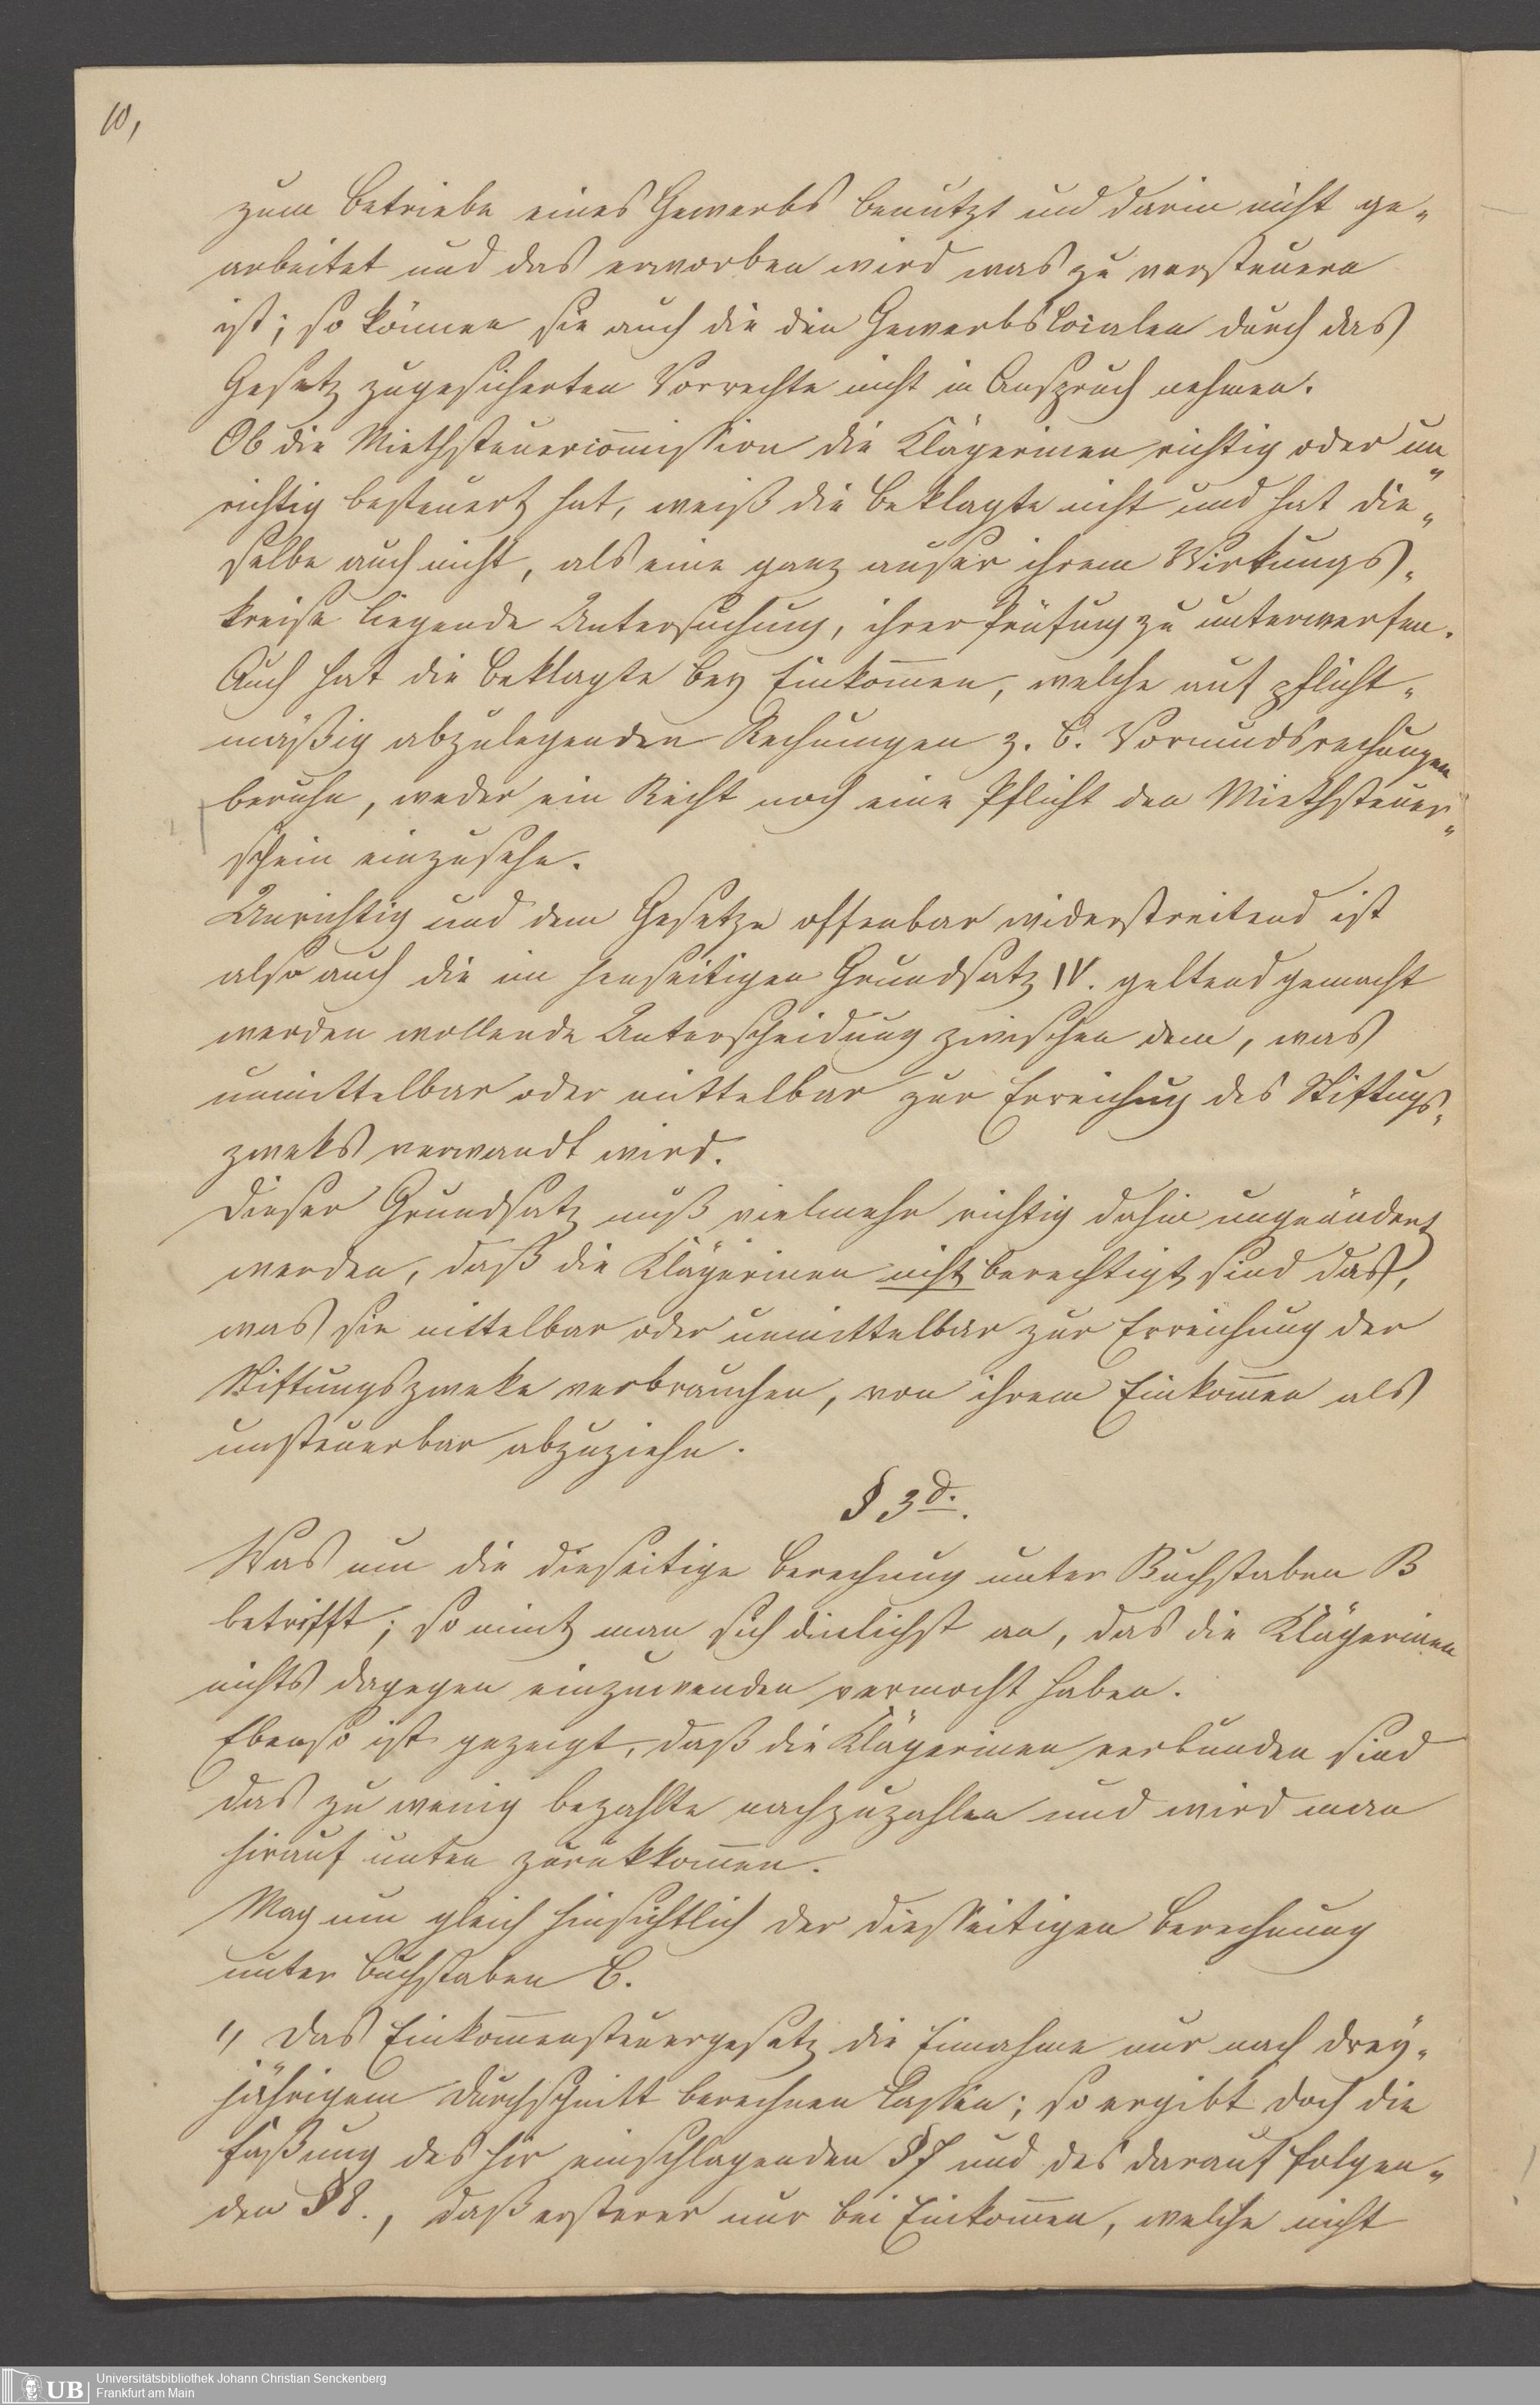 10,
zum Betriebe eines Gewerbs benutzt und darin nicht ge-
arbeitet und das erworben wird was zu versteuern
ist; so können sie auch die den Gewerbslocalen durch das
Gesetz zugesicherten Vorrechte nicht in Anspruch nehmen.
Ob die Miethsteuercom̄ission die Klägerinen richtig oder un-
richtig besteuert hat, weiß die Beklagte nicht und hat die-
selbe auch nicht, als eine ganz auser ihrem Wirkungs-
kreise liegende Untersuchung, ihrer Prüfung zu unterwerfen.
Auch hat die Beklagte bey Einkom̄en, welche auf pflicht-
mäßig abzulegenden Rechnungen z. B. Vormundsrechnungen
beruhn, weder ein Recht noch eine Pflicht den Miethsteuer-
schein einzusehn.
Unrichtig und dem Gesetze offenbar widerstreitend ist
also auch die im jenseitigen Grundsatz IV. geltend gemacht
werden wollende Unterscheidung zwischen dem, was
unmittelbar oder mittelbar zur Erreichug des Stiftugs-
zweks verwandt wird.
Dieser Grundsatz muß vielmehr richtig dahin umgeändert
werden, daß die Klägerinen nicht berechtigt sind das,
was sie mittelbar oder unmittelbar zur Erreichung der
Stiftungszweke verbrauchen, von ihrem Einkom̄en als
unsteuerbar abzuziehn.
§ 3d.
Was nun die dieseitige Berechnung unter Buchstaben B
betrifft; so nimt man sich an, das die Klägerinen
nichts dagegen einzuwenden vermocht haben.
Ebenso ist gezeigt, daß die Klägerinen verbunden sind
das zu wenig bezahlte nachzuzahlen und wird man
hirauf unten zurükkom̄en.
Mag nun gleich hinsichtlich der diesseitigen Berechnung
unter Buchstaben C.
1, Das Einkom̄ensteuergesetz die Einahme nur nach drey-
jährigem Durchschnitt berechnen lassen; so ergibt doch die
Faßung des hir einschlagenden § 7 und des darauf folgen-
den § 8., daß ersterer nur bei Einkom̄en, welche nicht
UB
Universitätsbibliothek Johann Christian Senckenberg
Frankfurt am Main